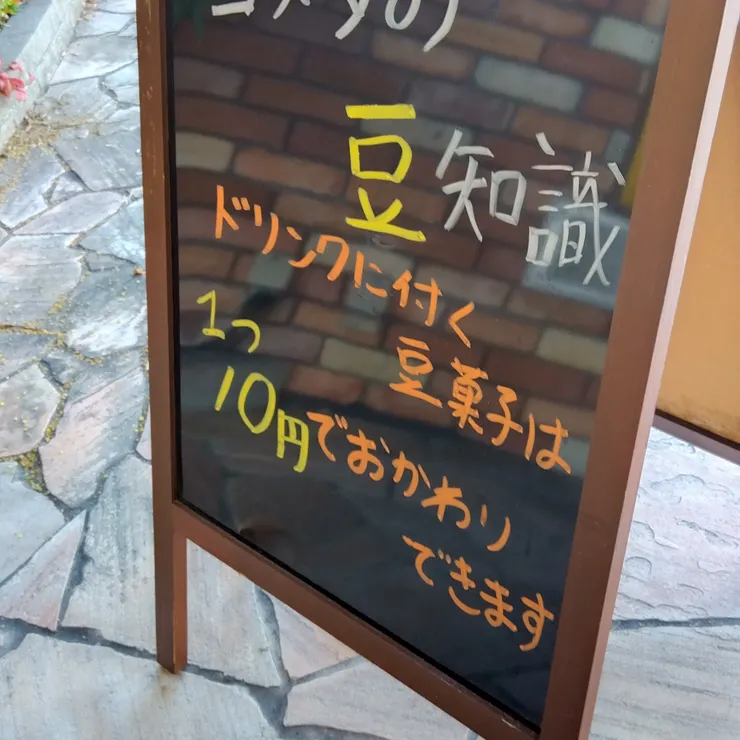 コメダの
豆知識
ドリンクに付く
豆菓子は
1つ
10円でおかわり
できます